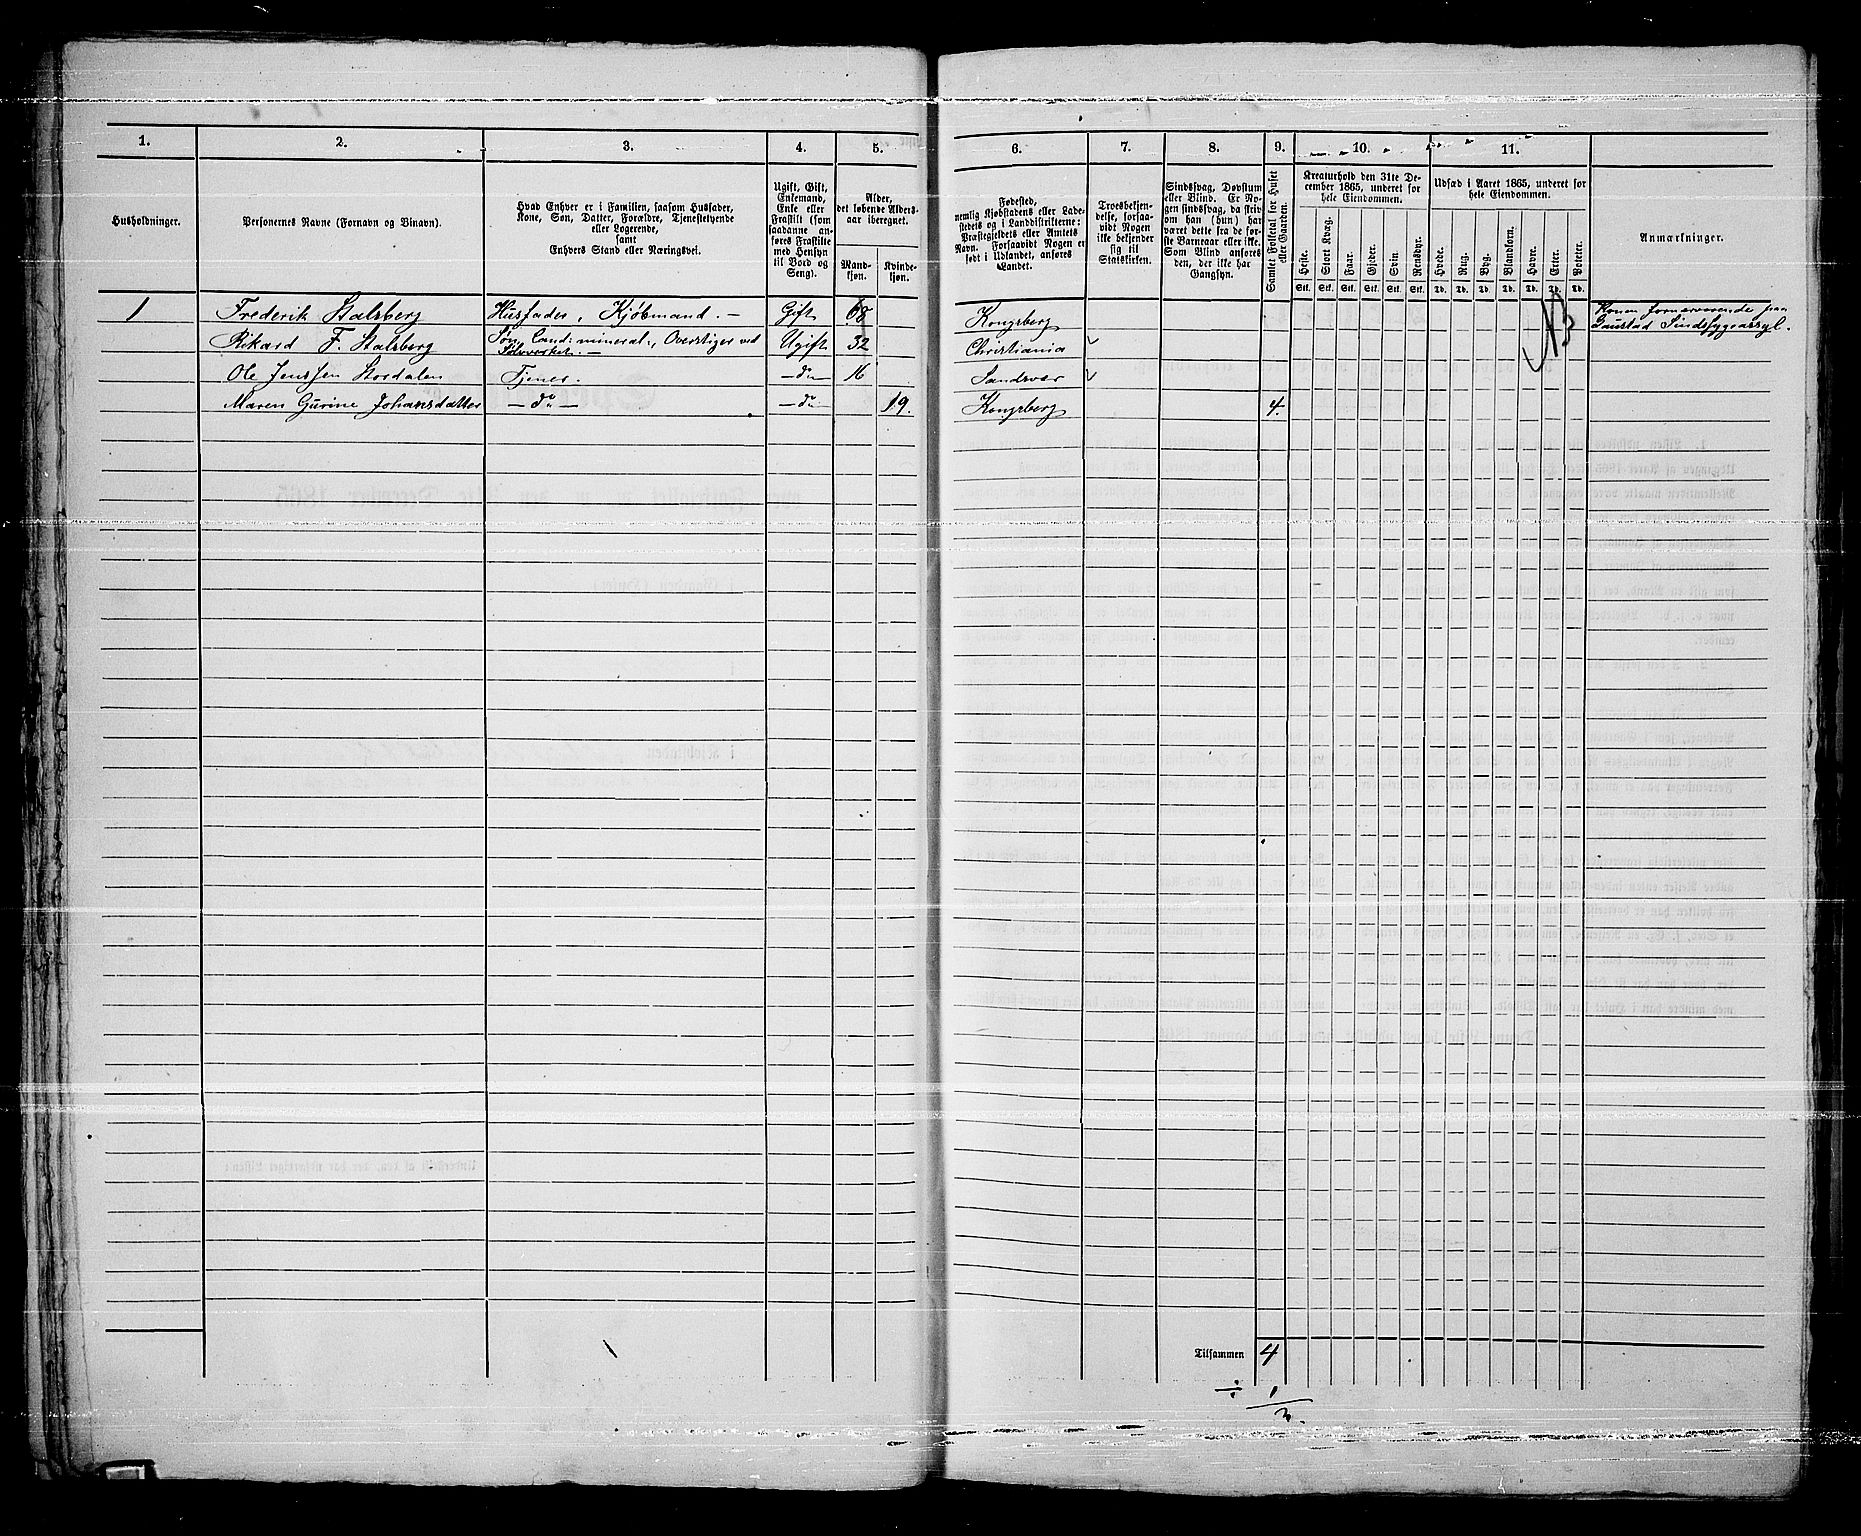 1. 2. 3. 4. 5. 6. 7. 8. 9. 10. 11.
Husholdninger.
Personernes Navne (Fornavn og Binavn).
Hvad Enhver er i Familien, saasom Husfader,
Kone, Søn, Datter, Forældre, Tjenestetyende
eller Logerende,
samt
Enhvers Stand eller Næringsvei.
Ugift, Gift,
Enkemand,
Enke eller
Fraskilt (som
saadanne an-
føres Fraskilte
med Hensyn
til Bord og
Seng).
Alder,
det løbende Alders-
aar iberegnet.
Mand-
kjøn.
Kvinde-
kjøn.
Fødested,
nemlig Kjøbstadens eller Lade-
stedets og i Landdistrikterne:
Præstegjeldets eller Amtets
Navn. Forsaavidt Nogen er
født i Udlandet, anføres
Landet.
Troesbekjen-
delse, forsaa-
vidt Nogen
ikke bekjender
sig til
Statskirken.
Sindssvag, Døvstum
eller Blind. Er No-
gen sindssvag, da skriv
om han (hun) har
været dette fra de før-
ste Barneaar eller ikke.
Som Blind anføres
den, der ikke har
Gangsyn.
Samlet Folketal for Huset
eller Gaarden.
Kreaturhold den 31te De-
cember 1865, underet for
hele Eiendommen.
Heste. Stort Kvæg. Faar. Gjeder. Svin. Rensdyr.
Stk. Stk. Stk. Stk. Stk. Stk.
Udsæd i Aaret 1865, underet for
hele Eiendommen.
Hvede. Rug. Byg. Blandkorn. Havre. Erter. Poteter.
Td. Td. Td. Td. Td. Td. Td.
Anmærkninger.
1 Frederik Stalsberg Husfader, Kjøbmand. Gift 68 Kongsberg Konen fornærværende paa
Gaustad Sindssygeassyl.
Rikard F. Stalsberg Søn, Cand: mineral:, Overstiger ved
Sølvverket. Ugift 32 Christiania
Ole Jenssen Stordalen Tjener. do 16 Sandsvær
Maren Gurine Johansdatter do do 19. Kongsberg 4.
Tilsammen 4
÷ 1
3.